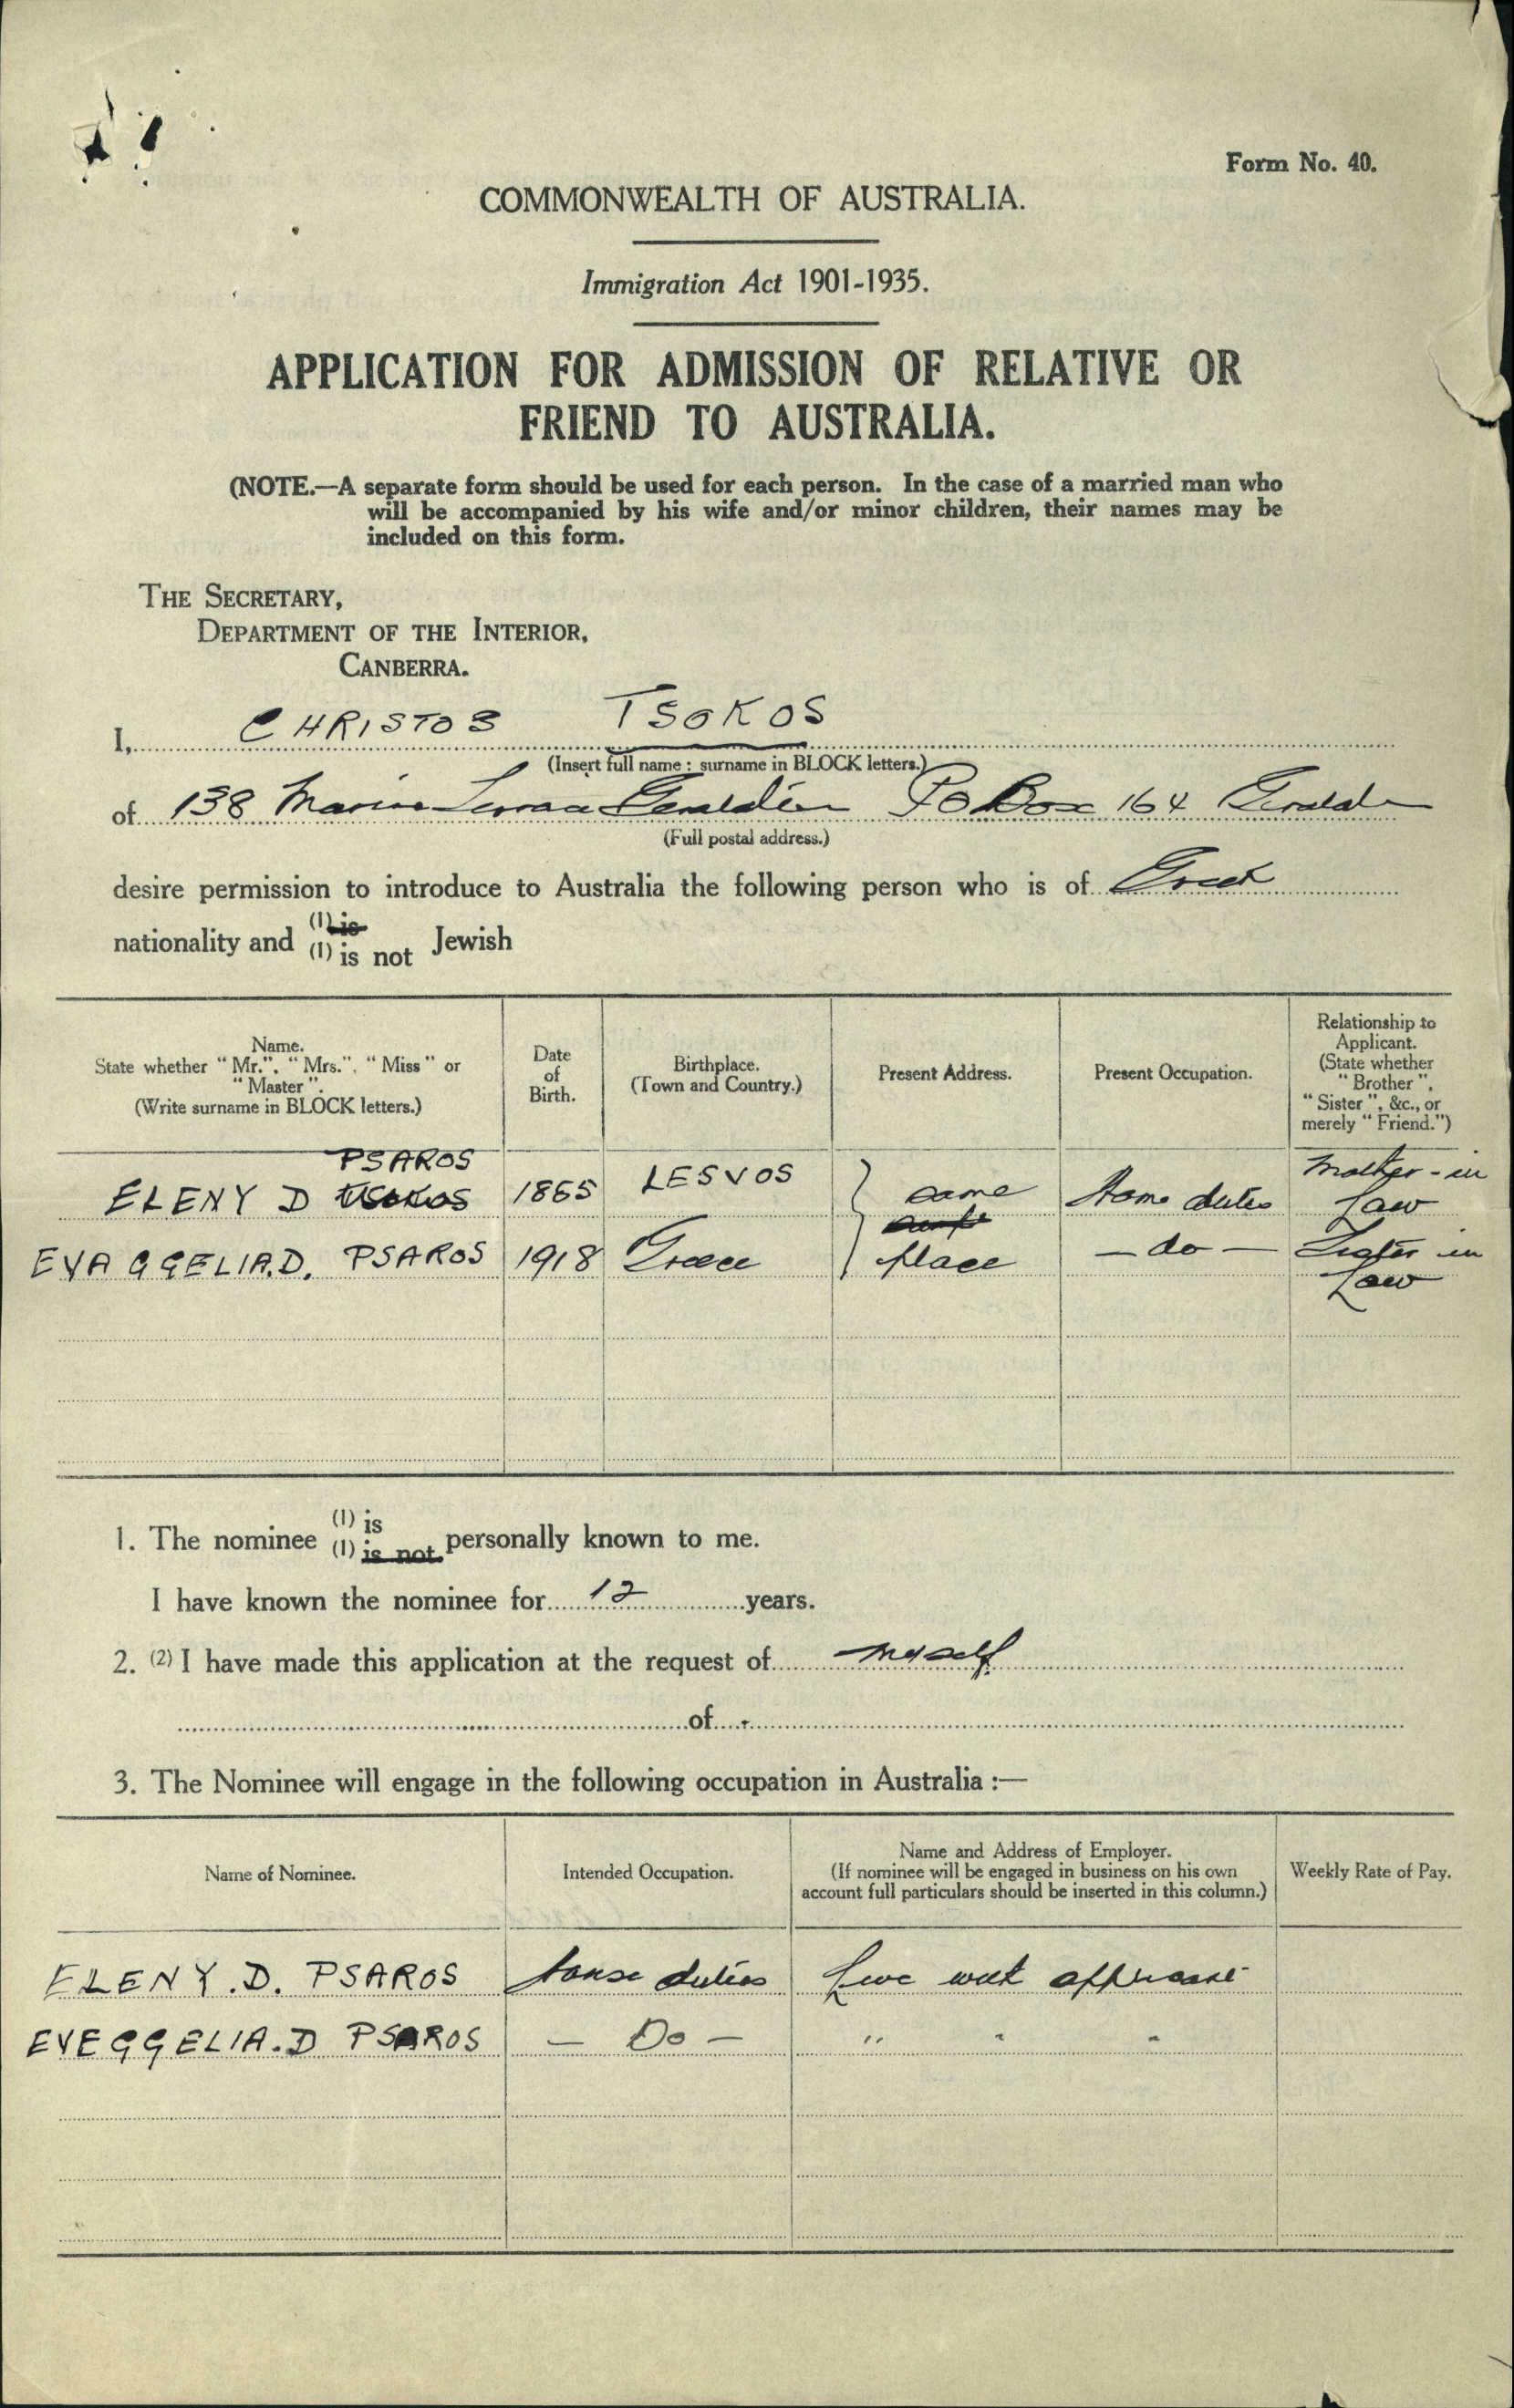 Form No. 40.
COMMONWEALTH OF AUSTRALIA.
Immigration Act 1901-1935.
APPLICATION FOR ADMISSION OF RELATIVE OR
FRIEND TO AUSTRALIA.
(NOTE.—A separate form should be used for each person. In the case of a married man who
will be accompanied by his wife and/or minor children, their names may be
included on this form.
THE SECRETARY,
DEPARTMENT OF THE INTERIOR,
CANBERRA.
I, CHRISTOS TSOKOS
(Insert full name : surname in BLOCK letters.)
of 138 Marine Terrace Geraldton PO Box 164 Geraldton
(Full postal address.)
desire permission to introduce to Australia the following person who is of Greek
(1) is
nationality and (1) is not Jewish
Name.
State whether "Mr.", "Mrs.", "Miss" or
"Master".
(Write surname in BLOCK letters.)
Date
of
Birth.
Birthplace.
(Town and Country.)
Present Address.
Present Occupation.
Relationship to
Applicant.
(State whether
"Brother",
"Sister", &c., or
merely "Friend.")
PSAROS
ELENY D TSOKOS 1865 LESVOS same Home duties Mother-in
Law
EVAGGELIA.D. PSAROS 1918 Greece place — do — Sister in
Law
(1) is
1. The nominee (1) is not personally known to me.
I have known the nominee for 12 years.
2. (2) I have made this application at the request of myself
of
3. The Nominee will engage in the following occupation in Australia :—
Name of Nominee.
Intended Occupation.
Name and Address of Employer.
(If nominee will be engaged in business on his own
account full particulars should be inserted in this column.)
Weekly Rate of Pay.
ELENY.D. PSAROS house duties Live with applicant
EVEGGELIA.D PSAROS — Do — " " "